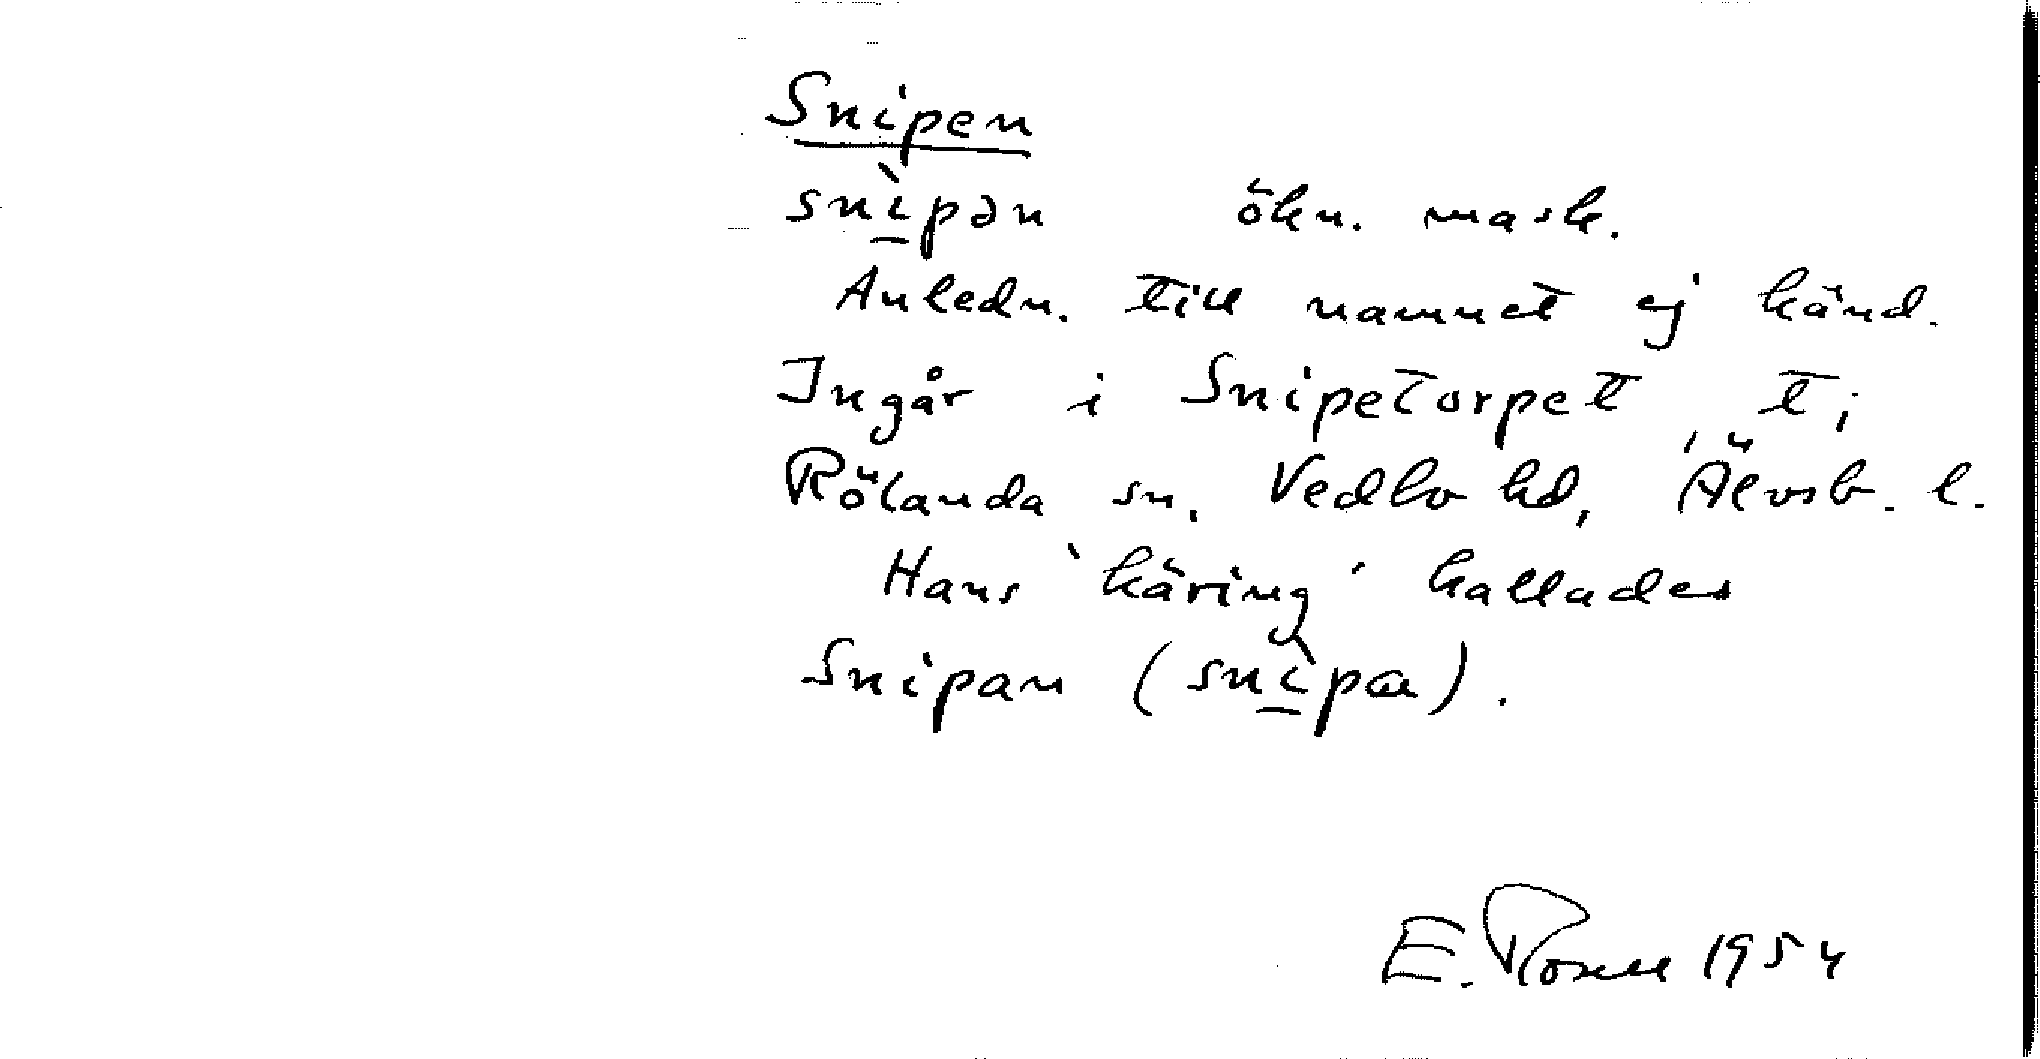 Snipen
snì̠pən ökn. mask.
Anledn. till namnet ej känd.
Ingår i Snipetorpet, t i
Rölanda sn, Vedbo hd, Älvsb. l.
Hans 'käring' kallades
Snipan (snì̠pa).
E. 1954